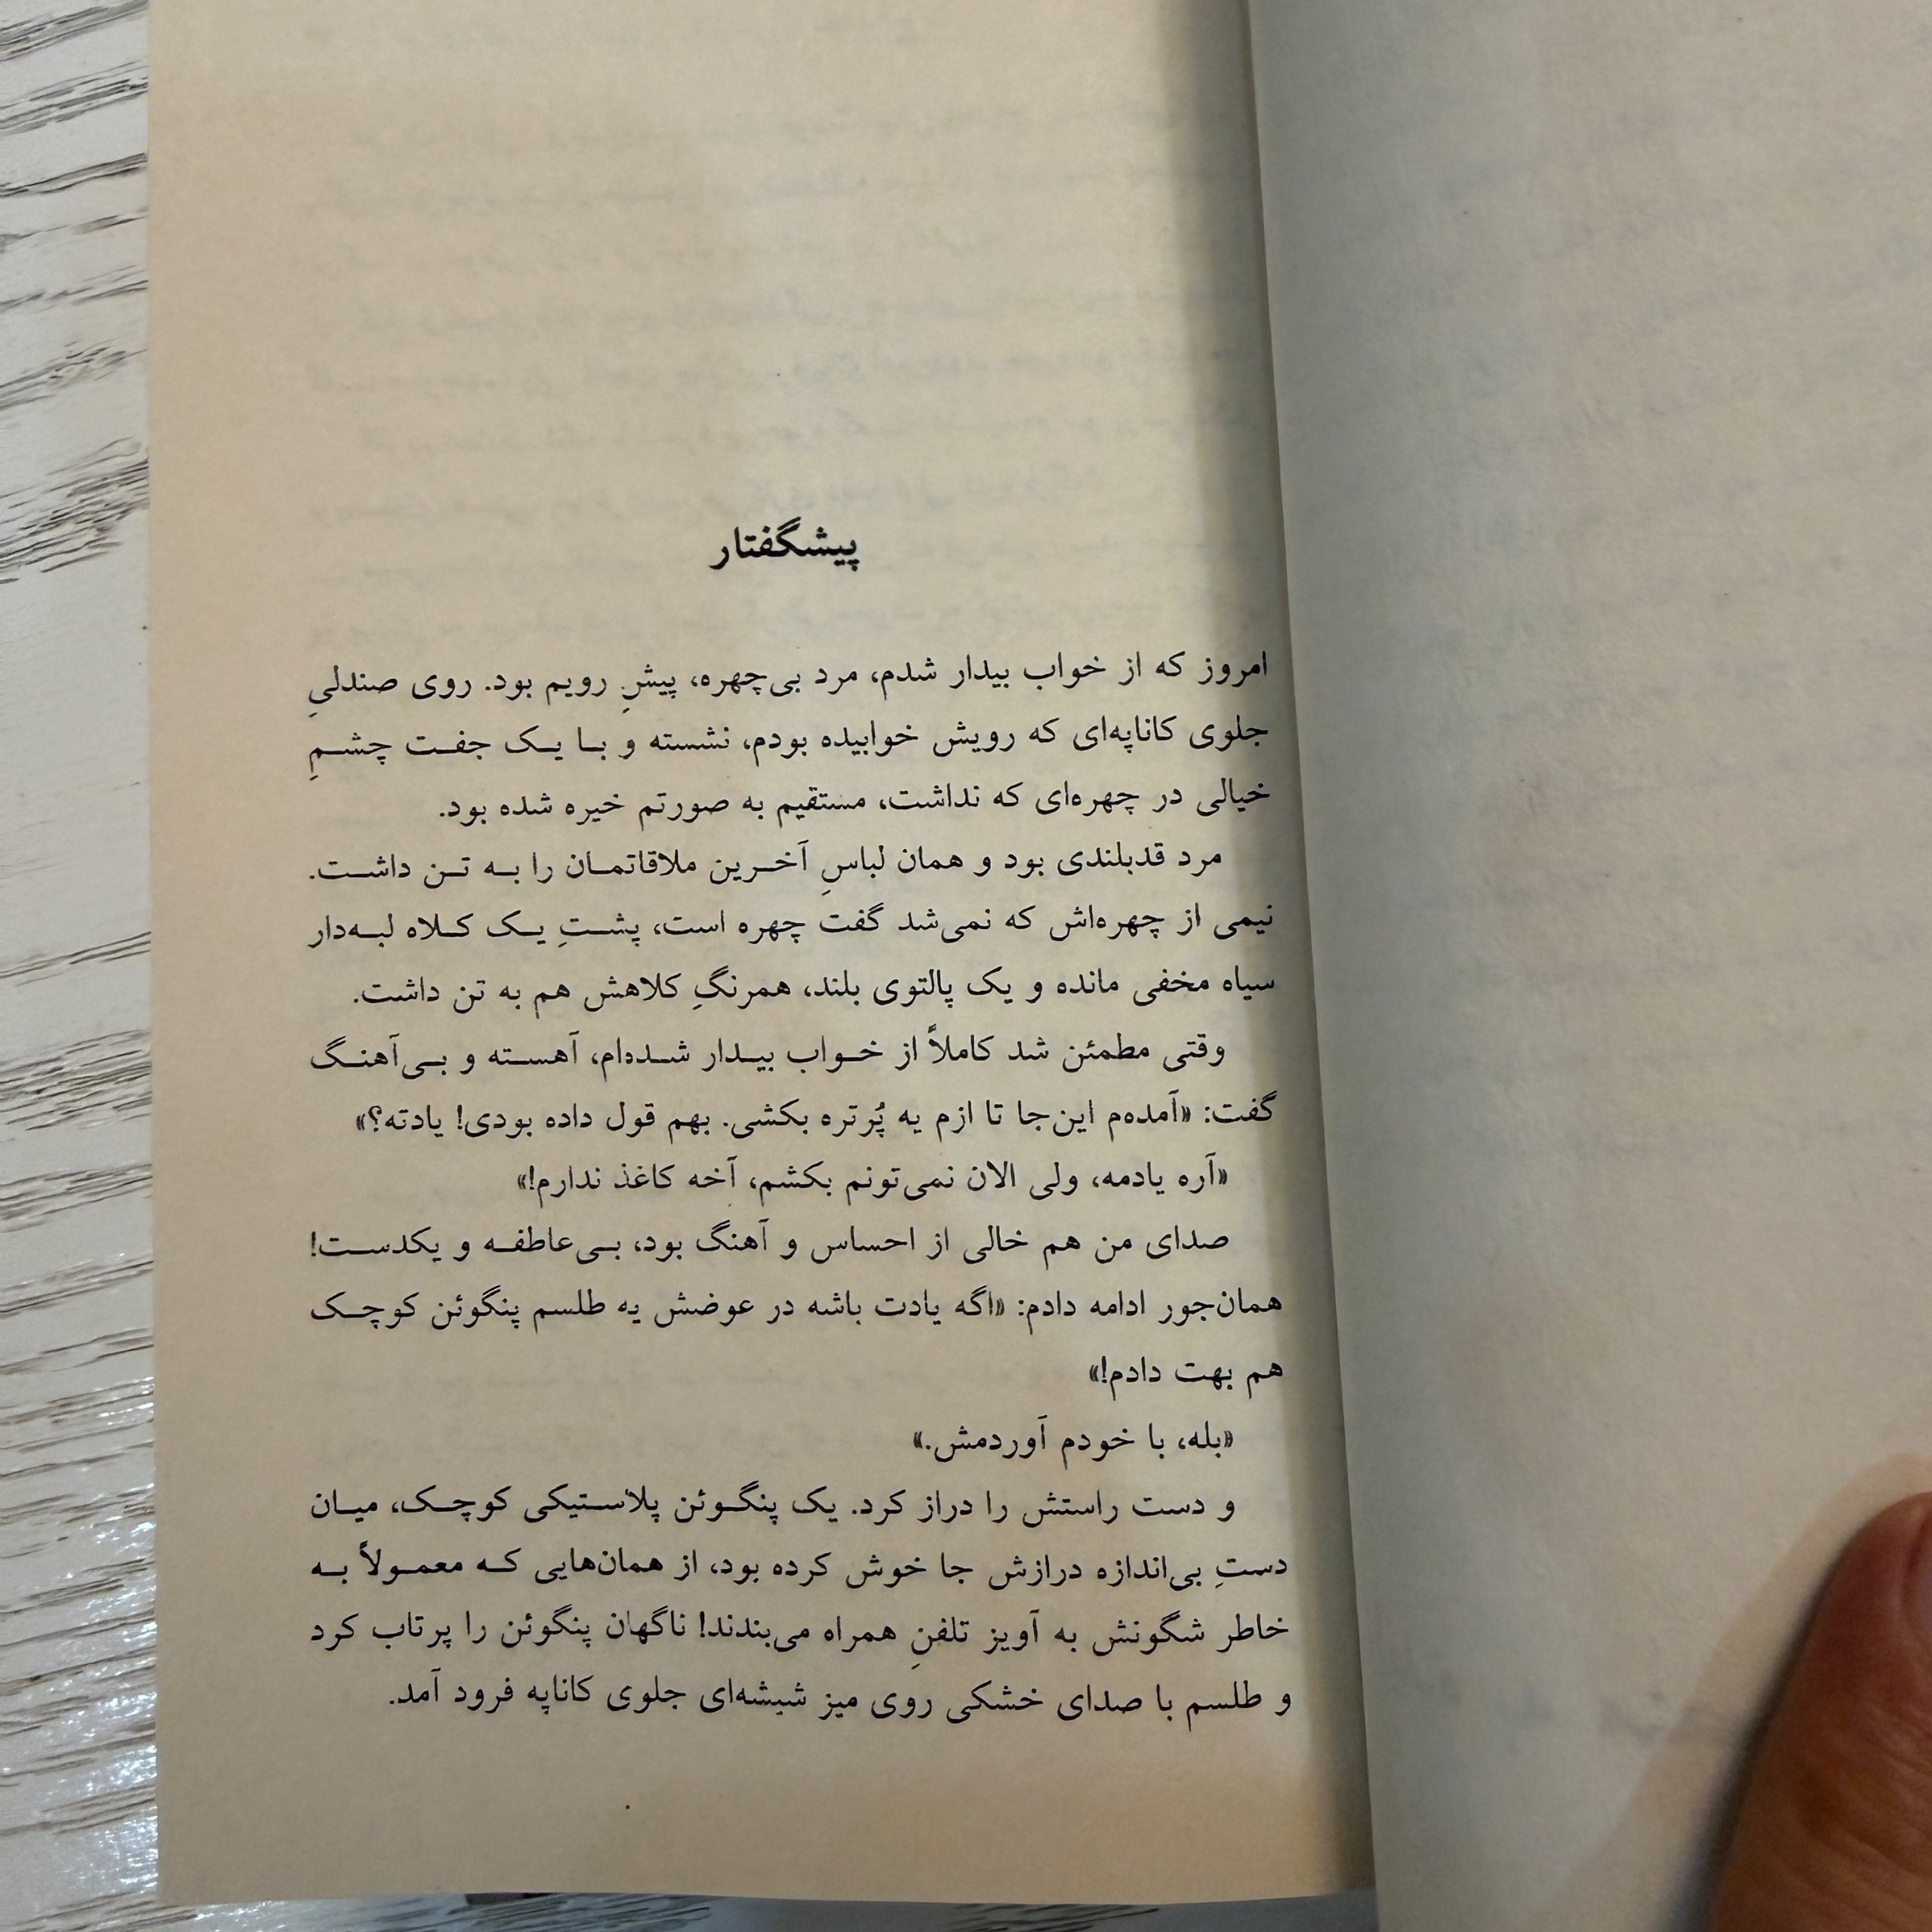 پیشگفتار
امروز که از خواب بیدار شدم، مرد بی‌چهره، پیشِ رویم بود. روی صندلیِ
جلوی کاناپه‌ای که رویش خوابیده بودم، نشسته و بـا یـک جفـت چشـمِ
خیالی در چهره‌ای که نداشت، مستقیم به صورتم خیره شده بود.
مرد قدبلندی بود و همان لباسِ آخـرین ملاقاتمـان را بـه تـن داشـت.
نیمی از چهره‌اش که نمی‌شد گفت چهره است، پشـتِ یـک کـلاه لبـه‌دار
سیاه مخفی مانده و یک پالتوی بلند، همرنگِ کلاهش هم به تن داشت.
وقتی مطمئن شد کاملاً از خـواب بیـدار شـده‌ام، آهسـته و بـی‌آهنـگ
گفت: «آمده‌م این‌جا تا ازم یه پُرتره بکشی. بهم قول داده بودی! یادته؟»
«آره یادمه، ولی الان نمی‌تونم بکشم، آخه کاغذ ندارم!»
صدای من هم خالی از احساس و آهنگ بود، بـی‌عاطفـه و یکدسـت!
همان‌جور ادامه دادم: «اگه یادت باشه در عوضش یه طلسم پنگوئن کوچـک
هم بهت دادم!»
«بله، با خودم آوردمش.»
و دست راستش را دراز کرد. یک پنگـوئن پلاسـتیکی کوچـک، میـان
دستِ بی‌اندازه درازش جا خوش کرده بود، از همان‌هایی کـه معمـولاً بـه
خاطر شگونش به آویز تلفنِ همراه می‌بندند! ناگهان پنگوئن را پرتاب کرد
و طلسم با صدای خشکی روی میز شیشه‌ای جلوی کاناپه فرود آمد.